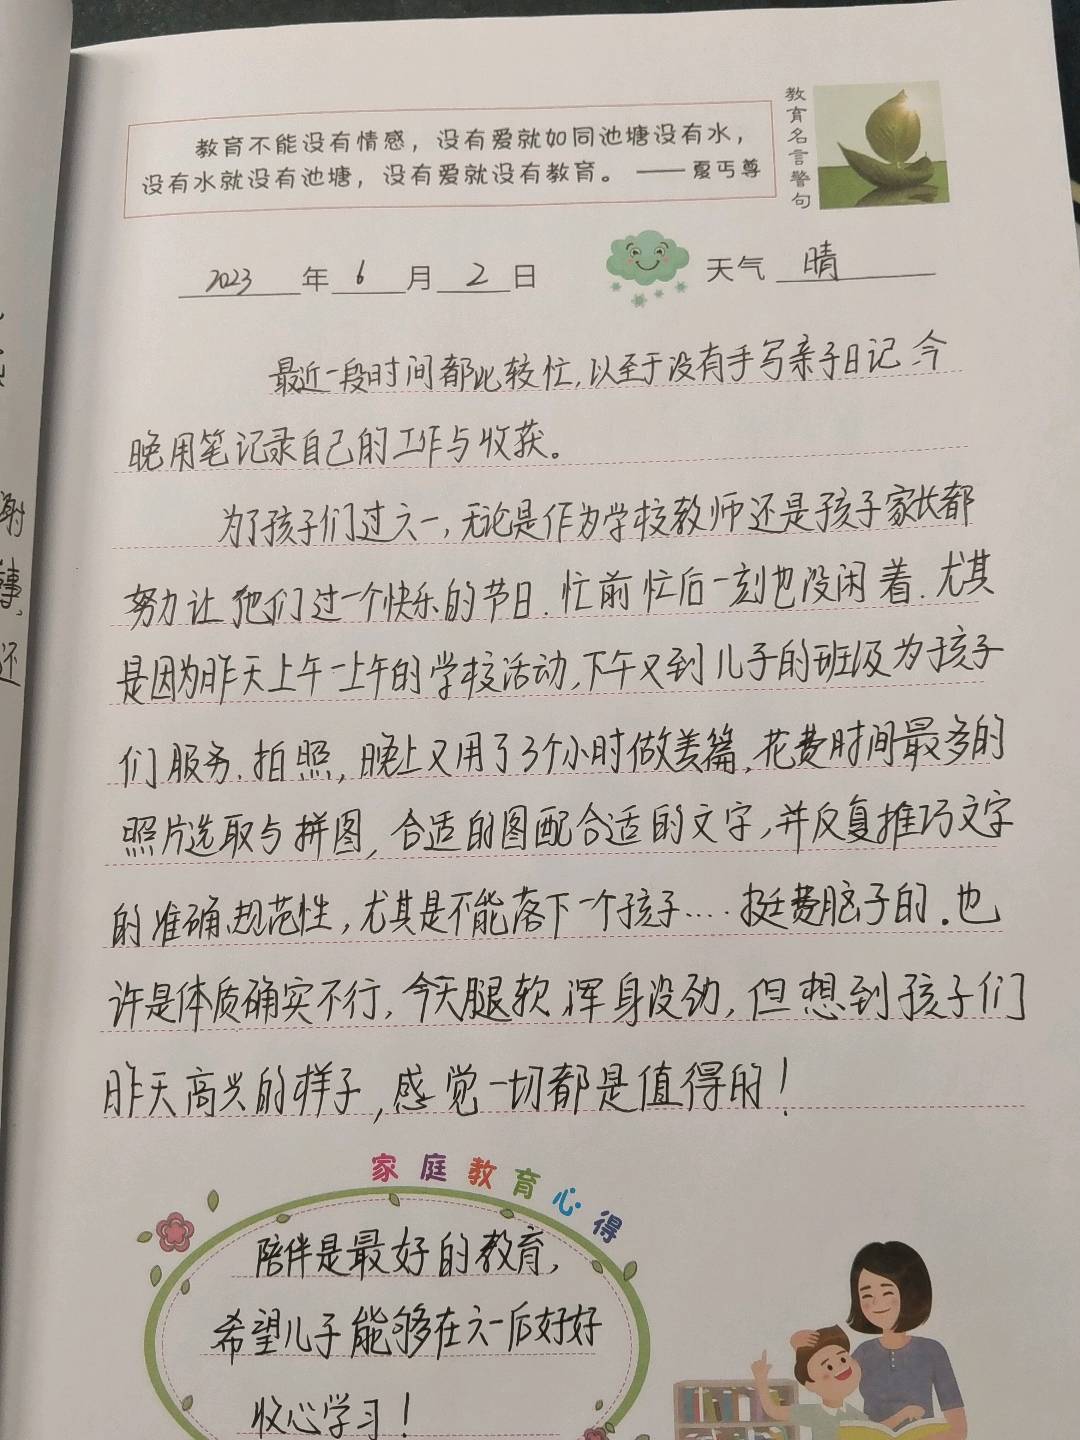 教育不能没有情感，没有爱就如同池塘没有水，
没有水就没有池塘，没有爱就没有教育。 ——夏丏尊
教育名言警句
2023年6月2日 天气 晴
最近一段时间都比较忙,以至于没有手写亲子日记 今
晚用笔记录自己的工作与收获。
为了孩子们过六一,无论是作为学校教师还是孩子家长都
努力让他们过一个快乐的节日.忙前忙后一刻也没闲着.尤其
是因为昨天上午一上午的学校活动,下午又到儿子的班级为孩子
们服务.拍照,晚上又用了3个小时做美篇,花费时间最多的
照片选取与拼图,合适的图配合适的文字,并反复推巧文字
的准确、规范性,尤其是不能落下一个孩子....挺费脑子的.也
许是体质确实不行,今天腿软,浑身没劲,但想到孩子们
昨天高兴的样子,感觉一切都是值得的!
家庭教育心得
陪伴是最好的教育,
希望儿子能够在六一后好好
收心学习!
谢
事,
还